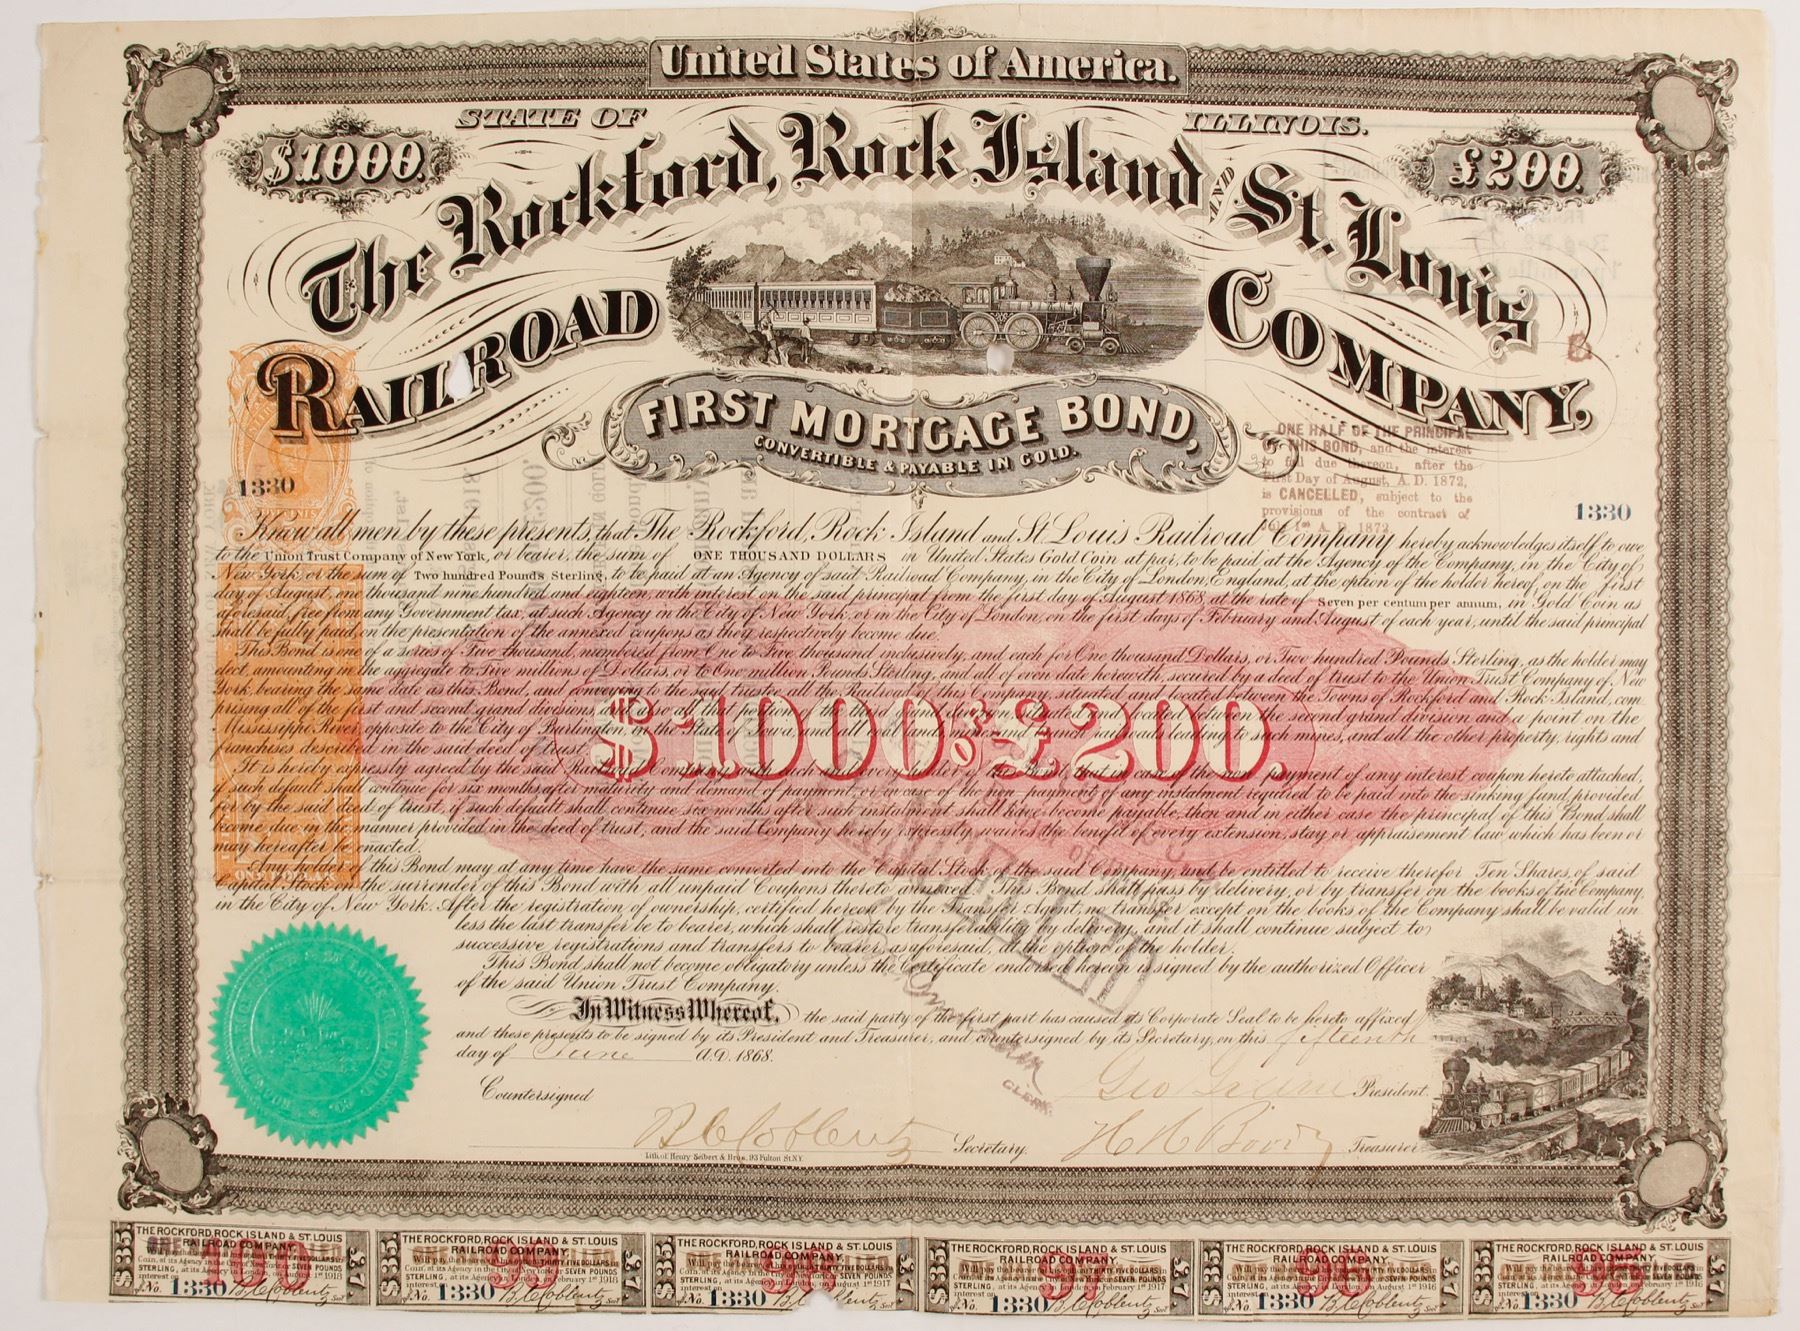 United States of America.
STATE OF ILLINOIS.
$1000. £200.
The Rockford, Rock Island AND St. Louis
RAILROAD COMPANY,
FIRST MORTGAGE BOND,
CONVERTIBLE & PAYABLE IN GOLD.
ONE HALF OF THE PRINCIPAL
OF THIS BOND, and the interest
to fall due thereon, after the
First Day of August, A.D. 1872,
is CANCELLED, subject to the
provisions of the contract of
1st A. D. 1872
1330 1330
Know all men by these presents, that The Rockford, Rock Island and St. Louis Railroad Company hereby acknowledges itself to owe
to the Union Trust Company of New York, or bearer, the sum of ONE THOUSAND DOLLARS in United States Gold Coin at par, to be paid at the Agency of the Company, in the City of
New York, or the sum of Two hundred Pounds Sterling, to be paid at an Agency of said Railroad Company, in the City of London, England, at the option of the holder hereof, on the first
day of August, one thousand nine hundred and eighteen, with interest on the said principal from the first day of August 1868, at the rate of Seven per centum per annum, in Gold Coin as
aforesaid, free from any Government tax, at such Agency in the City of New York, or in the City of London, on the first days of February and August of each year, until the said principal
shall be fully paid, on the presentation of the annexed coupons as they respectively become due.
This Bond is one of a series of Five thousand, numbered from One to Five thousand inclusively, and each for One thousand Dollars, or Two hundred Pounds Sterling, as the holder may
elect, amounting in the aggregate to Five millions of Dollars, or to One million Pounds Sterling, and all of even date herewith, secured by a deed of trust to the Union Trust Company of New
York, bearing the same date as this Bond, and conveying to the said trustee all the Railroad of this Company, situated and located between the Towns of Rockford and Rock Island, com-
prising all of the first and second grand divisions, and also all that portion of the third grand division, situated and located between the second grand division and a point on the
Mississippi River, opposite to the City of Burlington, in the State of Iowa, and all coal lands, mines and branch railroads leading to such mines, and all the other property, rights and
franchises described in the said deed of trust.
$1000 or £200.
It is hereby expressly agreed by the said Railroad Company with each and every holder of this Bond, that in case of the non payment of any interest coupon hereto attached,
if such default shall continue for six months after maturity and demand of payment, or in case of the non payment of any instalment required to be paid into the sinking fund provided
for by the said deed of trust, if such default shall continue six months after such instalment shall have become payable, then and in either case the principal of this Bond shall
become due in the manner provided in the deed of trust, and the said Company hereby expressly waives the benefit of every extension, stay or appraisement law which has been or
may hereafter be enacted.
Any holder of this Bond may at any time have the same converted into the Capital Stock of the said Company, and be entitled to receive therefor Ten Shares of said
Capital Stock on the surrender of this Bond with all unpaid Coupons thereto annexed. This Bond shall pass by delivery, or by transfer on the books of the Company,
in the City of New York. After the registration of ownership, certified hereon by the Transfer Agent, no transfer except on the books of the Company shall be valid un-
less the last transfer be to bearer, which shall restore transferability by delivery, and it shall continue subject to
successive registrations and transfers to bearer, as aforesaid, at the option of the holder.
This Bond shall not become obligatory unless the Certificate endorsed hereon is signed by the authorized Officer
of the said Union Trust Company.
In Witness Whereof, the said party of the first part has caused its Corporate Seal to be hereto affixed
and these presents to be signed by its President and Treasurer, and countersigned by its Secretary, on this fifteenth
day of June A.D. 1868.
CLERK.
ONE DOLLAR
Countersigned President.
Secretary. Treasurer
Lith. of Henry Seibert & Bros. 93 Fulton St. N.Y.
THE ROCKFORD, ROCK ISLAND & ST. LOUIS
RAILROAD COMPANY
$35 100
August 1st 1918
No. 1330
THE ROCKFORD, ROCK ISLAND & ST. LOUIS
RAILROAD COMPANY
$35 99
February 1st 1918
No. 1330
THE ROCKFORD, ROCK ISLAND & ST. LOUIS
RAILROAD COMPANY
$35 98
August 1st 1917
No. 1330
THE ROCKFORD, ROCK ISLAND & ST. LOUIS
RAILROAD COMPANY
$35 97
February 1st 1917
No. 1330
THE ROCKFORD, ROCK ISLAND & ST. LOUIS
RAILROAD COMPANY
$35 96
August 1st 1916
No. 1330
THE ROCKFORD, ROCK ISLAND & ST. LOUIS
RAILROAD COMPANY
$35 95
February 1st 1916
No. 1330